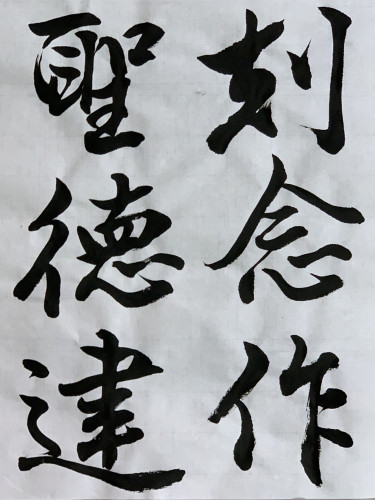 剋念作
聖德建